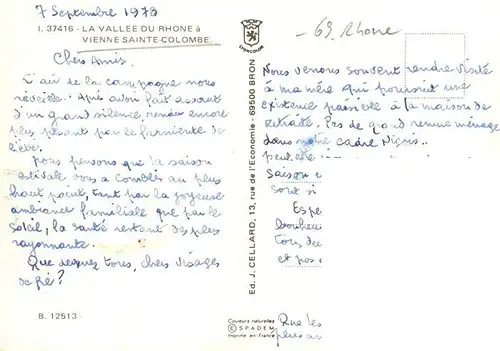 7 Septembre 1978
I. 37416 - LA VALLEE DU RHONE à
VIENNE SAINTE-COLOMBE
Chers Amis.
L'air de la campagne nous
réveille. Après avoir fait assaut
d'un grand silence, rendu encore
plus pesant par le farniente de
l'été.
Nous pensons que la saison
estivale vous a comblés au plus
haut point, tant par la joyeuse
ambiance familiale que par le
soleil, la santé restant des plus
rayonnante.
Que des tores, chers visages
de Ré?
B. 12513
LYONCOLOR
Ed. J. CELLARD, 13, rue de l'Economie - 69500 BRON
Couleurs naturelles
© SPADEM
Imprimé en France
- 69. Rhone
Nous venons souvent rendre visite
à ma mère qui poursuit une
existence paisible à la maison de
Retraite. Pas de grand remue ménage
dans notre cadre Niçois.
peut être
saison
sont si
Espe
bonheur
tous, de
et pos
Que les
plus an